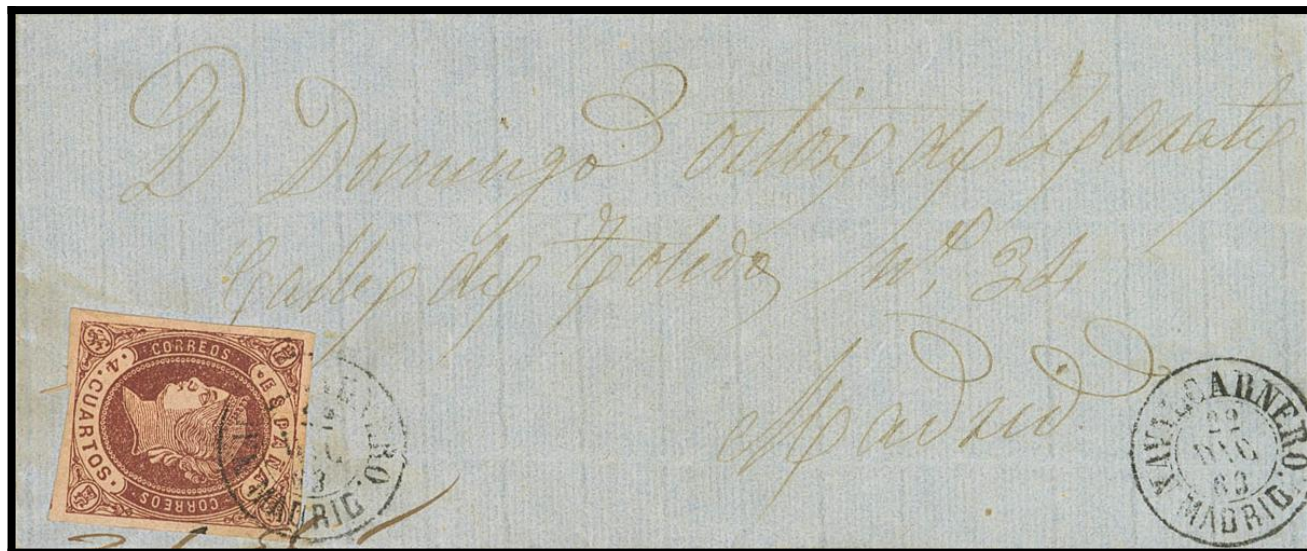 D Domingo Ortiz de Zarate
Calle de Toledo nº 34
Madrid
CORREOS
ESPAÑA
4 CUARTOS
CORREOS
MADRID
NAVALCARNERO
22
DIC
63
MADRID.